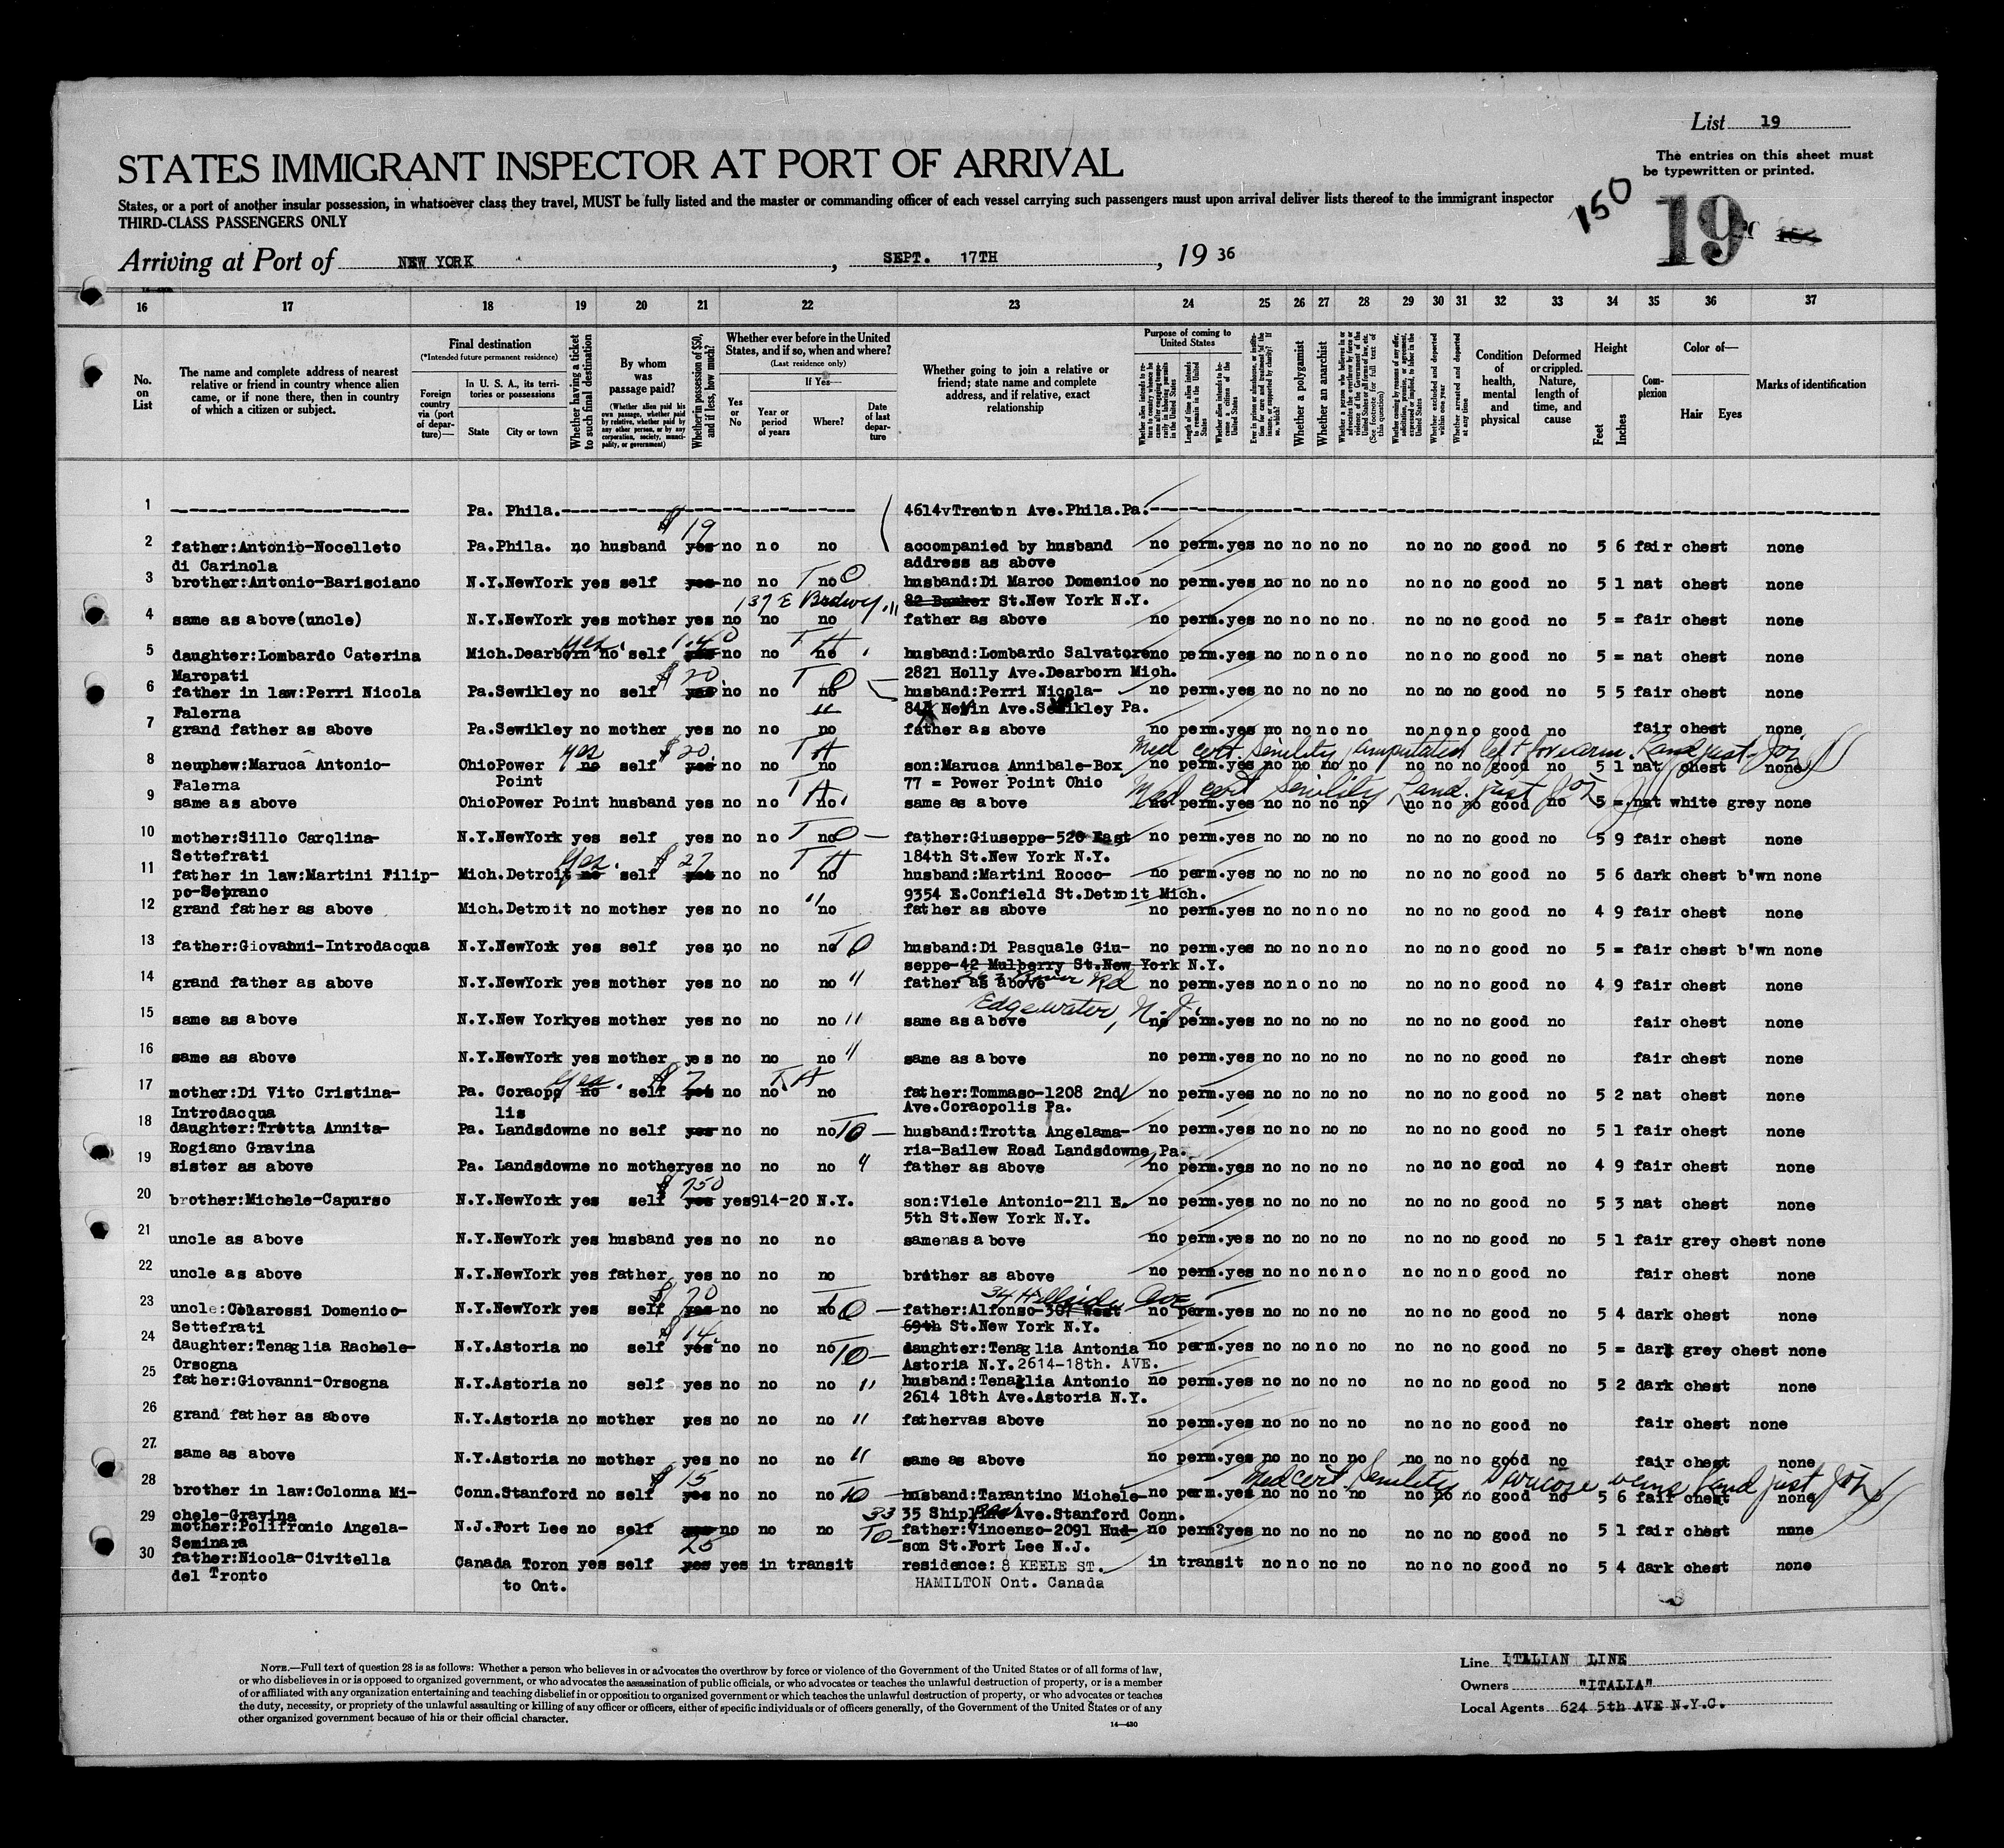 List 19
The entries on this sheet must
be typewritten or printed.
STATES IMMIGRANT INSPECTOR AT PORT OF ARRIVAL
150
19
States, or a port of another insular possession, in whatsoever class they travel, MUST be fully listed and the master or commanding officer of each vessel carrying such passengers must upon arrival deliver lists thereof to the immigrant inspector
THIRD-CLASS PASSENGERS ONLY
Arriving at Port of NEW YORK, SEPT. 17TH, 19 36
16 17 18 19 20 21 22 23 24 25 26 27 28 29 30 31 32 33 34 35 36 37
No. on List
The name and complete address of nearest relative or friend in country whence alien came, or if none there, then in country of which a citizen or subject.
Final destination
(*Intended future permanent residence)
Foreign country via (port of departure)—
In U. S. A., its territories or possessions
State
City or town
Whether having a ticket to such final destination
By whom was passage paid?
(Whether alien paid his own passage, whether paid by relative, whether paid by any other person, or by any corporation, society, municipality, or government)
Whether in possession of $50, and if less, how much?
Whether ever before in the United States, and if so, when and where?
(Last residence only)
If Yes—
Yes or No
Year or period of years
Where?
Date of last departure
Whether going to join a relative or friend; state name and complete address, and if relative, exact relationship
Purpose of coming to United States
Whether alien intends to return to country whence he came after engaging temporarily in laboring pursuits in the United States
Length of time alien intends to remain in the United States
Whether alien intends to become a citizen of the United States
Ever in prison or almshouse, or institution for care and treatment of the insane, or supported by charity? If so, which?
Whether a polygamist
Whether an anarchist
Whether a person who believes in or advocates the overthrow by force or violence of the Government of the United States or all forms of law, etc. (See footnote for full text of this question)
Whether coming by reason of any offer, solicitation, promise, or agreement, expressed or implied, to labor in the United States
Whether excluded and deported within one year
Whether arrested and deported at any time
Condition of health, mental and physical
Deformed or crippled. Nature, length of time, and cause
Height
Feet
Inches
Complexion
Color of—
Hair
Eyes
Marks of identification
1 Pa. Phila. 4614 Trenton Ave.Phila.Pa.
$ 19
2 father:Antonio-Nocelleto Pa.Phila. no husband yes no no no accompanied by husband no perm.yes no no no no no no no good no 5 6 fair chest none
di Carinola address as above
3 brother:Antonio-Barisciano N.Y.NewYork yes self yes no no no TO husband:Di Marco Domenico no perm.yes no no no no no no no good no 5 1 nat chest none
137 E Brdwy 82 Banker St.New York N.Y.
4 same as above(uncle) N.Y.NewYork yes mother yes no no no " father as above no perm.yes no no no no no no no good no 5 = fair chest none
yes 140 TA
5 daughter:Lombardo Caterina Mich.Dearborn no self yes no no no husband:Lombardo Salvatore no perm.yes no no no no no no no good no 5 = nat chest none
Maropati $ 20 TO 2821 Holly Ave.Dearborn Mich.
6 father in law:Perri Nicola Pa.Sewikley no self yes no no no husband:Perri Nicola- no perm.yes no no no no no no no good no 5 5 fair chest none
Falerna " Nevin Ave.Sewikley Pa.
7 grand father as above Pa.Sewikley no mother yes no no no father as above no perm.yes no no no no no no no good no fair chest none
yes $20 TA Med cert. Senility, amputated left forearm. Land just
8 neuphew:Maruca Antonio- OhioPower no self yes no no no son:Maruca Annibale-Box no perm.yes no no no no no no no good no 5 1 nat chest none
Falerna Point 77 = Power Point Ohio
TA Med cert Senility Land. just
9 same as above OhioPower Point husband yes no no no same as above no perm.yes no no no no no no no good no 5 = nat white grey none
10 mother:Sillo Carolina- N.Y.NewYork yes self yes no no no TO father:Giuseppe-520 East no perm.yes no no no no no no no good no 5 9 fair chest none
Settefrati 184th St.New York N.Y.
yes. $ 27 TA
11 father in law:Martini Filip- Mich.Detroit no self yes no no no husband:Martini Rocco- no perm.yes no no no no no no no good no 5 6 dark chest b'wn none
po-Seprano 9354 E.Confield St.Detroit Mich.
12 grand father as above Mich.Detroit no mother yes no no " no father as above no perm.yes no no no no no no no good no 4 9 fair chest none
13 father:Giovanni-Introdacqua N.Y.NewYork yes self yes no no no TO husband:Di Pasquale Giu- no perm.yes no no no no no no no good no 5 = fair chest b'wn none
seppe-42 Mulberry St.New York N.Y.
River Rd
14 grand father as above N.Y.NewYork yes mother yes no no no " father as above no perm.yes no no no no no no no good no 4 9 fair chest none
Edgewater, N.J.
15 same as above N.Y.New Yorkyes mother yes no no no " same as above no perm.yes no no no no no no no good no fair chest none
16 same as above N.Y.NewYork yes mother yes no no no " same as above no perm.yes no no no no no no no good no fair chest none
yes. $ 7 TA
17 mother:Di Vito Cristina- Pa. Coraopo no self yes no no no father:Tommaso-1208 2nd no perm.yes no no no no no no no good no 5 2 nat chest none
Introdacqua lis Ave.Coraopolis Pa.
18 daughter:Trotta Annita- Pa. Landsdowne no self yes no no no TO husband:Trotta Angelama- no perm.yes no no no no no no no good no 5 1 fair chest none
Rogiano Gravina ria-Bailew Road Landsdowne Pa.
19 sister as above Pa. Landsdowne no motheryes no no no " father as above no perm.yes no no no no no no no good no 4 9 fair chest none
$
20 brother:Michele-Capurso N.Y.NewYork yes self yes yes914-20 N.Y. son:Viele Antonio-211 E. no perm.yes no no no no no no no good no 5 3 nat chest none
5th St.New York N.Y.
21 uncle as above N.Y.NewYork yes husband yes no no no samenas above no perm.yes no no no no no no no good no 5 1 fair grey chest none
22 uncle as above N.Y.NewYork yes father yes no no no brother as above no perm.yes no no no no no no no good no fair chest none
$ 70 34 Hillside Ave
23 uncle:Colarossi Domenico- N.Y.NewYork yes self yes no no no TO father:Alfonso-307 West no perm.yes no no no no no no no good no 5 4 dark chest none
Settefrati $ 14. 69th St.New York N.Y.
24 daughter:Tenaglia Rachele- N.Y.Astoria no self yes no no no TO daughter:Tenaglia Antonia no perm.yes no no no no no no no good no 5 = dark grey chest none
Orsogna Astoria N.Y.2614-18th. AVE.
25 father:Giovanni-Orsogna N.Y.Astoria no self yes no no no " husband:Tenaglia Antonio no perm.yes no no no no no no no good no 5 2 dark chest none
2614 18th Ave.Astoria N.Y.
26 grand father as above N.Y.Astoria no mother yes no no no " fathervas above no perm.yes no no no no no no no good no fair chest none
27 same as above N.Y.Astoria no mother yes no no no " same as above no perm.yes no no no no no no no good no fair chest none
$ 15 Med cert Senility, Varicose veins Land just
28 brother in law:Colonna Mi- Conn.Stanford no self yes no no no TO husband:Tarantino Michele- no perm.yes no no no no no no no good no 5 6 fair chest none
chele-Gravina 33 35 Ave.Stanford Conn.
29 mother:Polifronio Angela- N.J.Fort Lee no self yes no no no TO father:Vincenzo-2091 Hud- no perm?yes no no no no no no no good no 5 1 fair chest none
Seminara 25 son St.Fort Lee N.J.
30 father:Nicola-Civitella Canada Toron yes self yes yes in transit residence: 8 KEELE ST. in transit no no no no no no no good no 5 4 dark chest none
del Tronto to Ont. HAMILTON Ont. Canada
NOTE.—Full text of question 28 is as follows: Whether a person who believes in or advocates the overthrow by force or violence of the Government of the United States or of all forms of law,
or who disbelieves in or is opposed to organized government, or who advocates the assassination of public officials, or who advocates or teaches the unlawful destruction of property, or is a member
of or affiliated with any organization entertaining and teaching disbelief in or opposition to organized government or which teaches the unlawful destruction of property, or who advocates or teaches
the duty, necessity, or propriety of the unlawful assaulting or killing of any officer or officers, either of specific individuals or of officers generally, of the Government of the United States or of any
other organized government because of his or their official character.
14—430
Line ITALIAN LINE
Owners "ITALIA"
Local Agents 624 5th AVE N.Y.C.